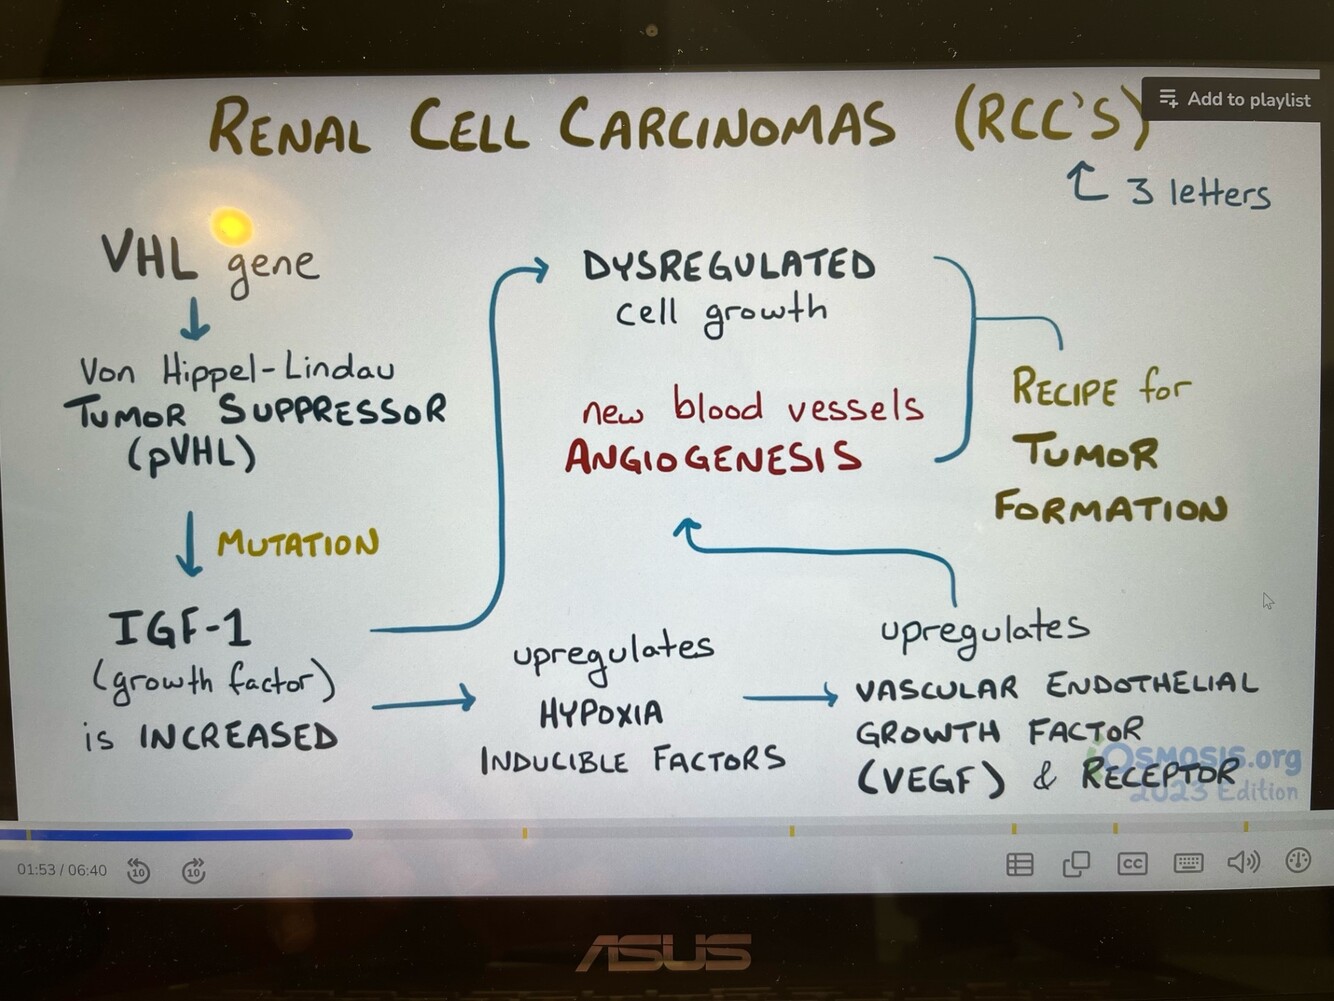 Add to playlist
RENAL CELL CARCINOMAS (RCC'S)
3 letters
VHL gene
Von Hippel-Lindau
TUMOR SUPPRESSOR
(pVHL)
MUTATION
IGF-1
(growth factor)
is INCREASED
DYSREGULATED
cell growth
new blood vessels
ANGIOGENESIS
RECIPE for
TUMOR
FORMATION
upregulates
HYPOXIA
INDUCIBLE FACTORS
upregulates
VASCULAR ENDOTHELIAL
GROWTH FACTOR
(VEGF) & RECEPTOR
OSMOSIS.org
2023 Edition
01:53 / 06:40
10
10
CC
ASUS